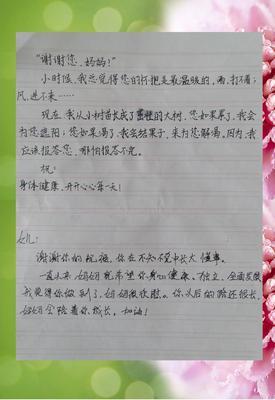 “谢谢您，妈妈！”
小时候，我总觉得您的怀抱是最温暖的，雨，打不着；
风，进不来……
现在，我从小树苗长成了蛮粗的大树，您如果累了，我会
为您遮阳；您如果渴了，我会结果子，来为您解渴。因为，我
应该报答您，哪怕报答不完。
祝：
身体健康，开开心心每一天！
女儿：
谢谢你的祝福，你在不知不觉中长大懂事。
一直以来，妈妈就希望你身心健康、独立、全面发展
我觉得你做到了，妈妈很欣慰。你以后的路还很长，
妈妈会陪着你成长，加油！